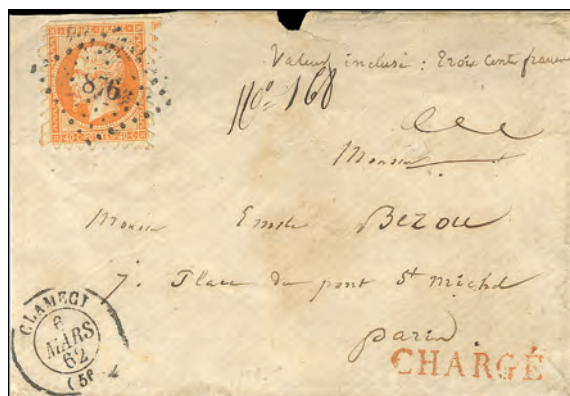 876
Valeur incluse : Trois cents francs
No= 168
Monsieur
Monsieur Emile Bezou
7. Place du pont St Michel
Paris.
CLAMECY
6
MARS
62
(56)
CHARGÉ